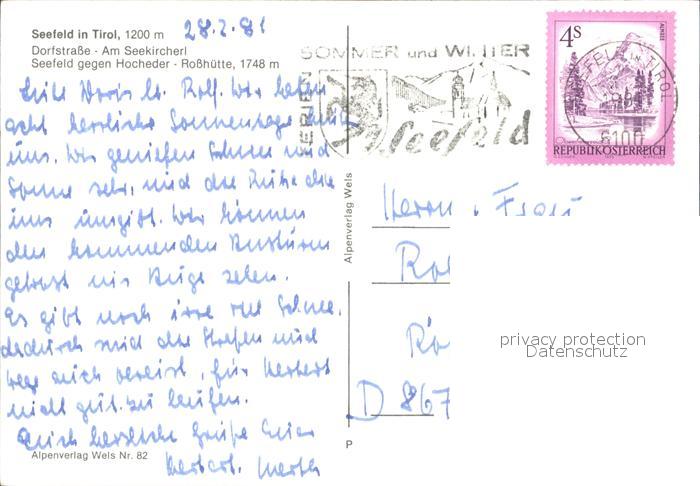 Seefeld in Tirol, 1200 m 28.2.81
Dorfstraße · Am Seekircherl
Seefeld gegen Hocheder - Roßhütte, 1748 m
Doris u. Rolf. Wir haben
acht herrliche Sonnentage hinter
uns. Wir genießen Schnee und
Sonne sehr, und die Ruhe die
uns umgibt. Wir können
den kommenden Ansturm
getrost ins Auge sehen.
Es gibt noch irre viel Schnee,
dadurch sind die Straßen und
Wege auch vereist, für Herbert
nicht gut zu laufen.
Euch herzliche Grüße
Herbert.
Alpenverlag Wels Nr. 82
Alpenverlag Wels
P
SOMMER und WINTER
FERIEN
Seefeld
SEEFELD IN TIROL
6100
4 S
ALMSEE
REPUBLIK ÖSTERREICH
Herrn u. Frau
Ro
Rö
D 867
privacy protection
Datenschutz